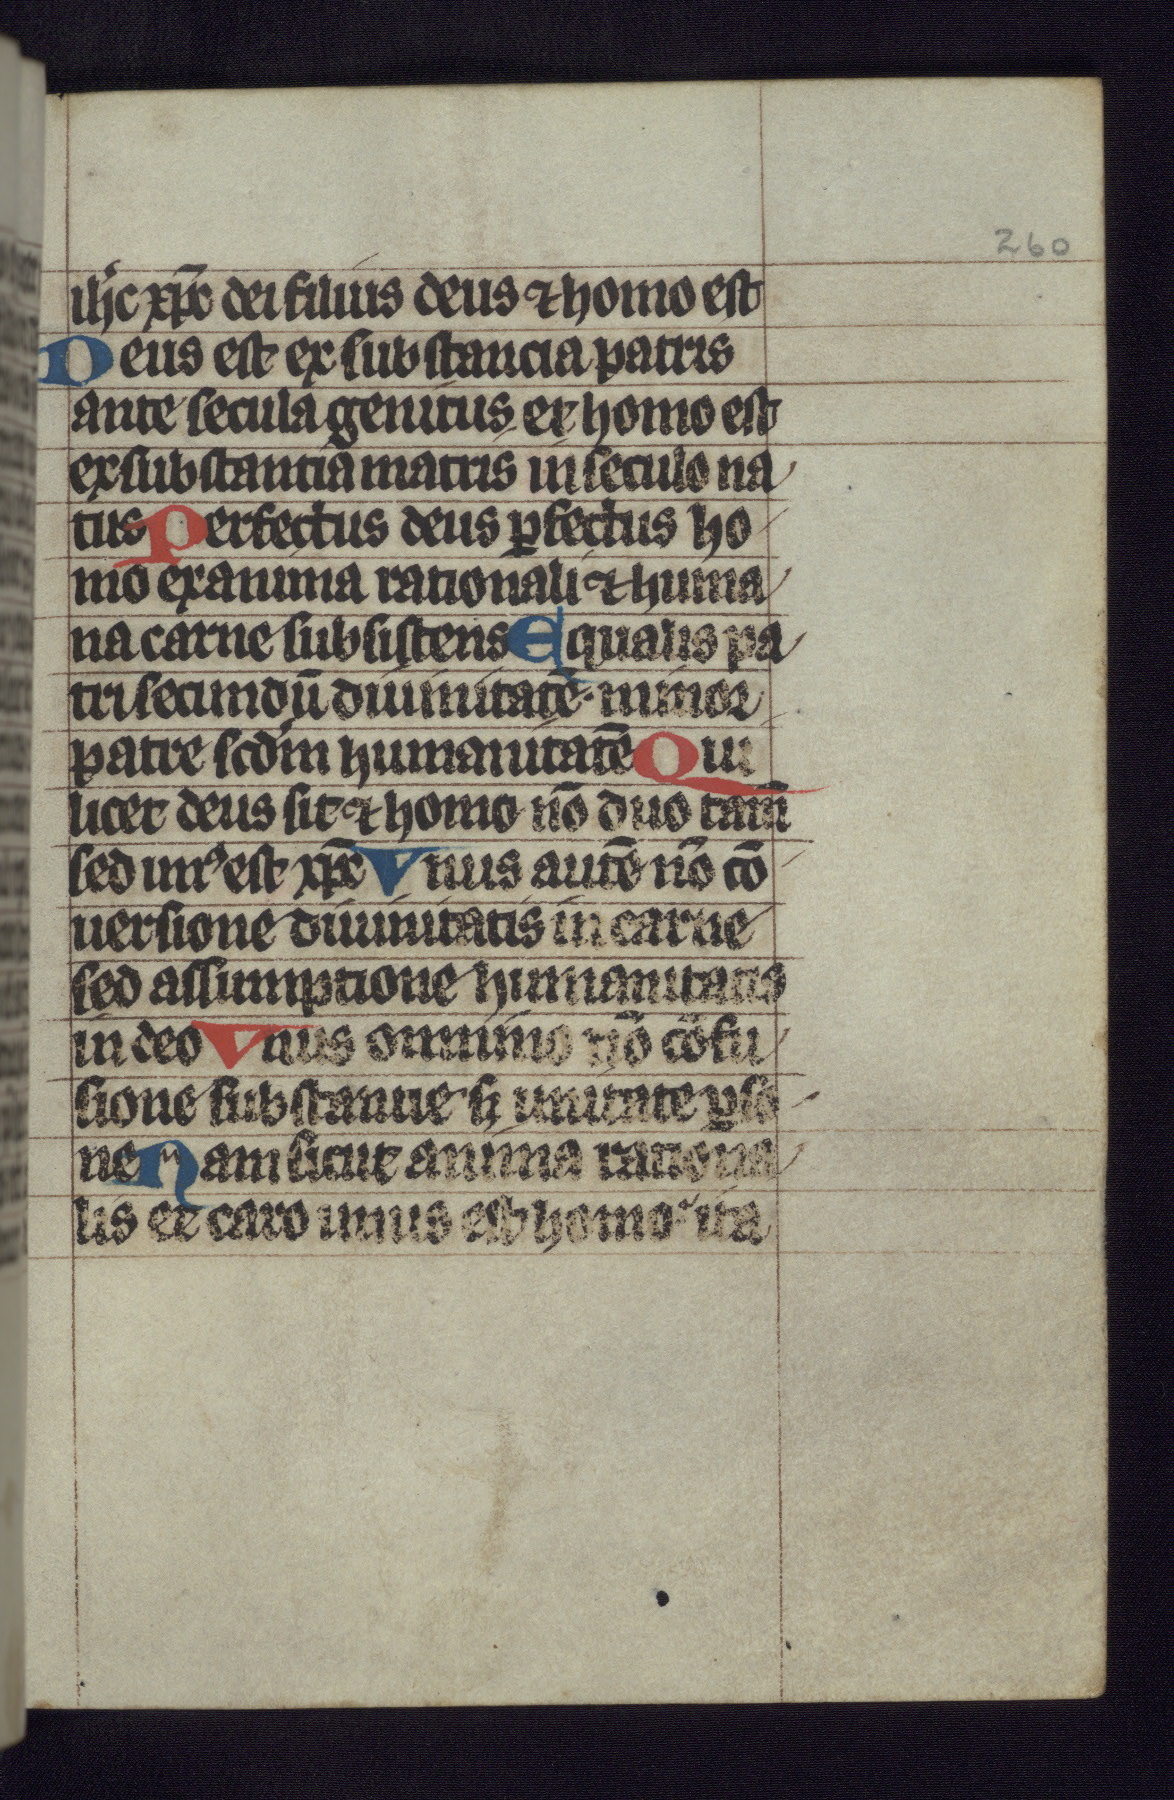 260
ih̅c xp̅c dei filius deus ⁊ homo est
Deus est ex substancia patris
ante secula genitus et homo est
ex substantia matris in seculo na
tus Perfectus deus ꝑfectus ho
mo ex anima rationali ⁊ huma
na carne subsistens Equalis pa
tri secundu̅ diuinitate̅ minor
patre scd̅m humanitate̅ Qui
licet deus sit ⁊ homo no̅ duo tam̅
sed unꝰ est xp̅c Vnus aute̅ no̅ co̅
uersione diuinitatis in carne
sed assumptione humanitatis
in deo Vnus omnino no̅ co̅fu
sione substantie s; unitate ꝑso
ne Nam sicut anima rationa
lis et caro unus est homo ita